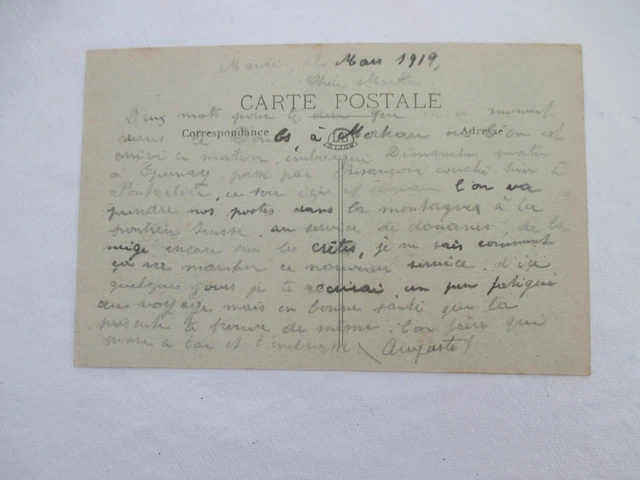 Mardi, Mars 1919,
Chère Marthe
CARTE POSTALE
Deux mots pour te dire que en ce moment
dans le Doubs, à Morteau où l'on est
Correspondance
Adresse
arrivé ce matin, embarqué Dimanche matin
à Epernay, passé par Besançon couché hier à
Pontarlier, ce soir ici et demain l'on va
prendre nos postes dans la montagnes à la
frontière Suisse, au service de douanes, de la
neige encore sur les crêtes, je ne sais comment
ça va marcher ce nouveau service, d'ici
quelques jours je te un peu fatigué
du voyage mais en bonne santé que la
présente te trouve de même. Ton frère qui
pense à toi et t'embrasse (Auguste)